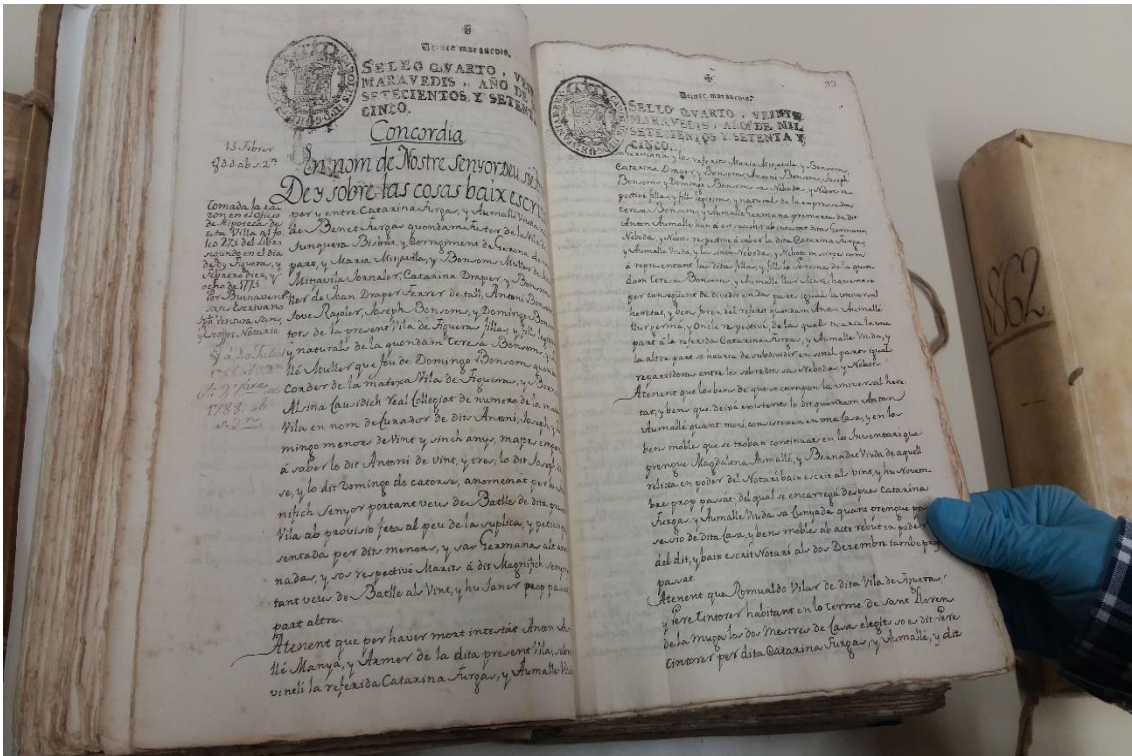 Veinte maravedis.
SELLO QVARTO, VEIN
MARAVEDIS, AÑO DE
SETECIENTOS Y SETENTA
CINCO.
Concordia
En nom de Nostre Senyor Deu
De y sobre las cosas baix escri
13 Febrer
Tomada la ra
zon en el Oficio
de Hipoteca de
esta Villa al fo
leo 275 del Libro
segundo en el dia
de oy Figueras, y
Febrero diez, y
ocho de 1775
Por Buenavent
sans Escrivano
1788
per y entre Catarina Furgas, y Aumallé Viuda
de Benet Furgas quondam Fuster de la Vila de
Junquera Bisbat, y Corregiment de Gerona de
part, y Maria Mitjavila, y Bonsoms Muller de
Mitjavila Jornaler, Catarina Draper, y Bonsoms
ller de Joan Draper Ferrer de tall, Antoni Bon
Jove Rajoler, Joseph Bonsoms, y Domingo Bon
tots de la present Vila de Figueras fillas, y fills legitims
y naturals de la quondam Teresa Bonsoms, y
llé Muller que fou de Domingo Bonsoms quon
Corder de la matexa Vila de Figueras, y
Alsina Causidich Real Collegiat de numero de la ma
Vila en nom de Curador de dits Antoni, Joseph, y
mingo menors de vint y sinch anys, majors empero
á saber lo dit Antoni de vint, y tres, lo dit Joseph
se, y lo dit Domingo de catorse, anomenat per lo
nifich senyor portant veus de Batlle de dita
Vila ab provisio feta al peu de la suplica, y peticio
sentada per dits menors, y sas Germanas alt
nadas, y sos respective Marits á dit Magnifich senyor
tant veus de Batlle als Vint, y hu Janer prop passat
part altre.
Atenent que per haver mort intestat Anton
llé Manyá, y Armer de la dita present Vila,
vinti la referida Catarina Furgas, y Aumallé Viuda
93
Veinte maravedis.
SELLO QVARTO, VEINTE
MARAVEDIS, AÑO DE MIL
SETECIENTOS Y SETENTA Y
CINCO.
Germana y los referits Maria Mitjavila, y Bonsoms,
Catarina Draper, y Bonsoms, Antoni Bonsoms, Joseph
Bonsoms y Domingo Bonsoms sas Nebodas, y Nebots res
pective fillas, y fills legitims, y naturals de la expressada
Teresa Bonsoms, y Aumallé Germana premorta de dit
Anton Aumallé han á est succehit ab intestat dits Germana,
Neboda, y Nebots respective á saber la dita Catarina Furgas,
y Aumallé Viuda, y las sinch Nebodas, y Nebots in stirpes com
á representant las ditas fillas, y fills la Persona de la quon
dam Teresa Bonsoms, y Aumallé llur Mare, havense
per consiguient de dividir en dos parts iguals la universal
heretat, y bens propis del referit quondam Anton Aumallé
llur germá, y Oncle respective, de las quals tocaria la una
part á la referida Catarina Furgas, y Aumallé Viuda, y
la altra part se hauria de subdividir en sinch parts iguals
repartidora entre los sobredits sas Nebodas, y Nebots.
Atenent que los bens de que se compon la universal here
tat, y bens que deixá existents lo dit quondam Anton
Aumallé quant morí, consisteixen en una Casa, y en los
bens mobles que se troban continuats en lo Inventari que
prengué Magdalena Aumallé, y Bernades Viuda de aquell
relicta en poder del Notari baix escrit als vint, y hu Novem
bre prop passat; del qual se encarregá despres Catarina
Furgas, y Aumallé Viuda sa Cunyada quant prengué pos
sessio de dita Casa, y bens mobles ab acte rebut en poder
del dit, y baix escrit Notari als dos Dezembre tambe prop
passat.
Atenent que Romualdo Vilar de dita Vila de Figueras,
y Pere Tintorer habitant en lo terme de Sant Llorens
de la Muga los dos Mestres de Casas elegits so es dit Pere
Tintorer per dita Catarina Furgas, y Aumallé, y dit
1862.